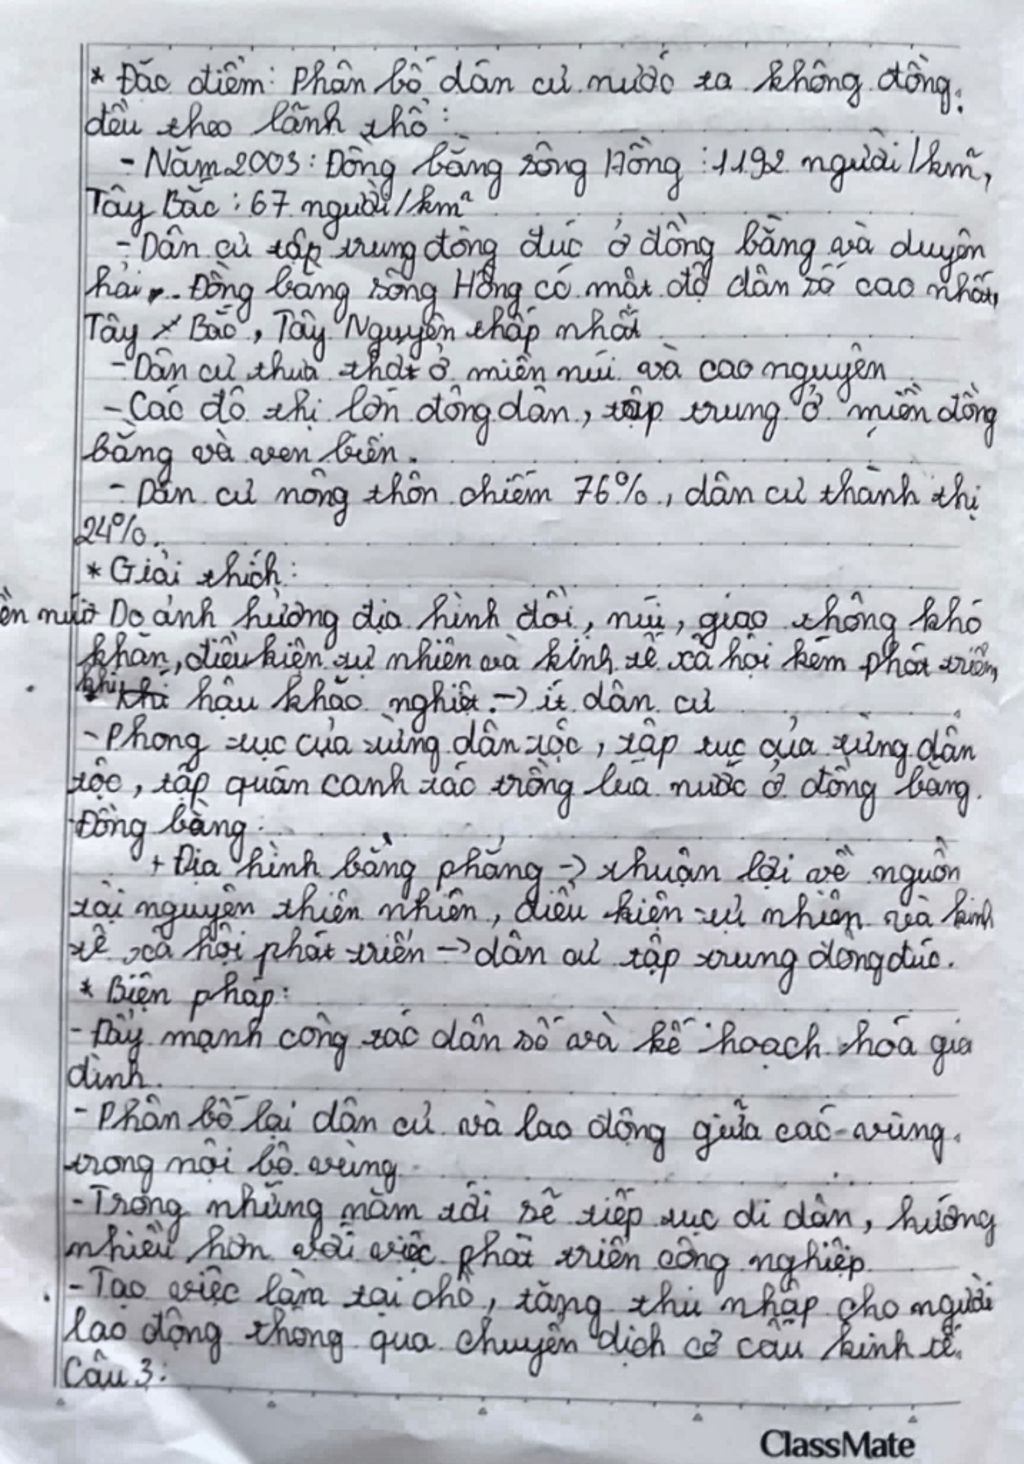 * Đặc điểm: Phân bố dân cư nước ta không đồng.
đều theo lãnh thổ:
- Năm 2003: Đồng bằng sông Hồng: 1192 người/km²,
Tây Bắc: 67 người/km²
- Dân cư tập trung đông đúc ở đồng bằng và duyên
hải, Đồng bằng sông Hồng có mật độ dân số cao nhất,
Tây Bắc, Tây Nguyên thấp nhất
- Dân cư thưa thớt ở miền núi và cao nguyên
- Các đô thị lớn đông dân, tập trung ở miền đồng
bằng và ven biển.
- Dân cư nông thôn chiếm 76%, dân cư thành thị
24%.
* Giải thích:
núi Do ảnh hưởng địa hình đồi, núi, giao thông khó
khăn, điều kiện tự nhiên và kinh tế xã hội kém phát triển,
khí hậu khắc nghiệt. -> ít dân cư
- Phong tục của từng dân tộc, tập tục của từng dân
tộc, tập quán canh tác trồng lúa nước ở đồng bằng.
Đồng bằng:
+ Địa hình bằng phẳng -> thuận lợi về nguồn
tài nguyên thiên nhiên, điều kiện tự nhiên và kinh
tế xã hội phát triển -> dân cư tập trung đông đúc.
* Biện pháp:
- Đẩy mạnh công tác dân số và kế hoạch hóa gia
đình.
- Phân bố lại dân cư và lao động giữa các vùng.
trong nội bộ vùng.
- Trong những năm tới sẽ tiếp tục di dân, hướng
nhiều hơn với việc phát triển công nghiệp.
- Tạo việc làm tại chỗ, tăng thu nhập cho người
lao động thông qua chuyển dịch cơ cấu kinh tế.
Câu 3:
ClassMate